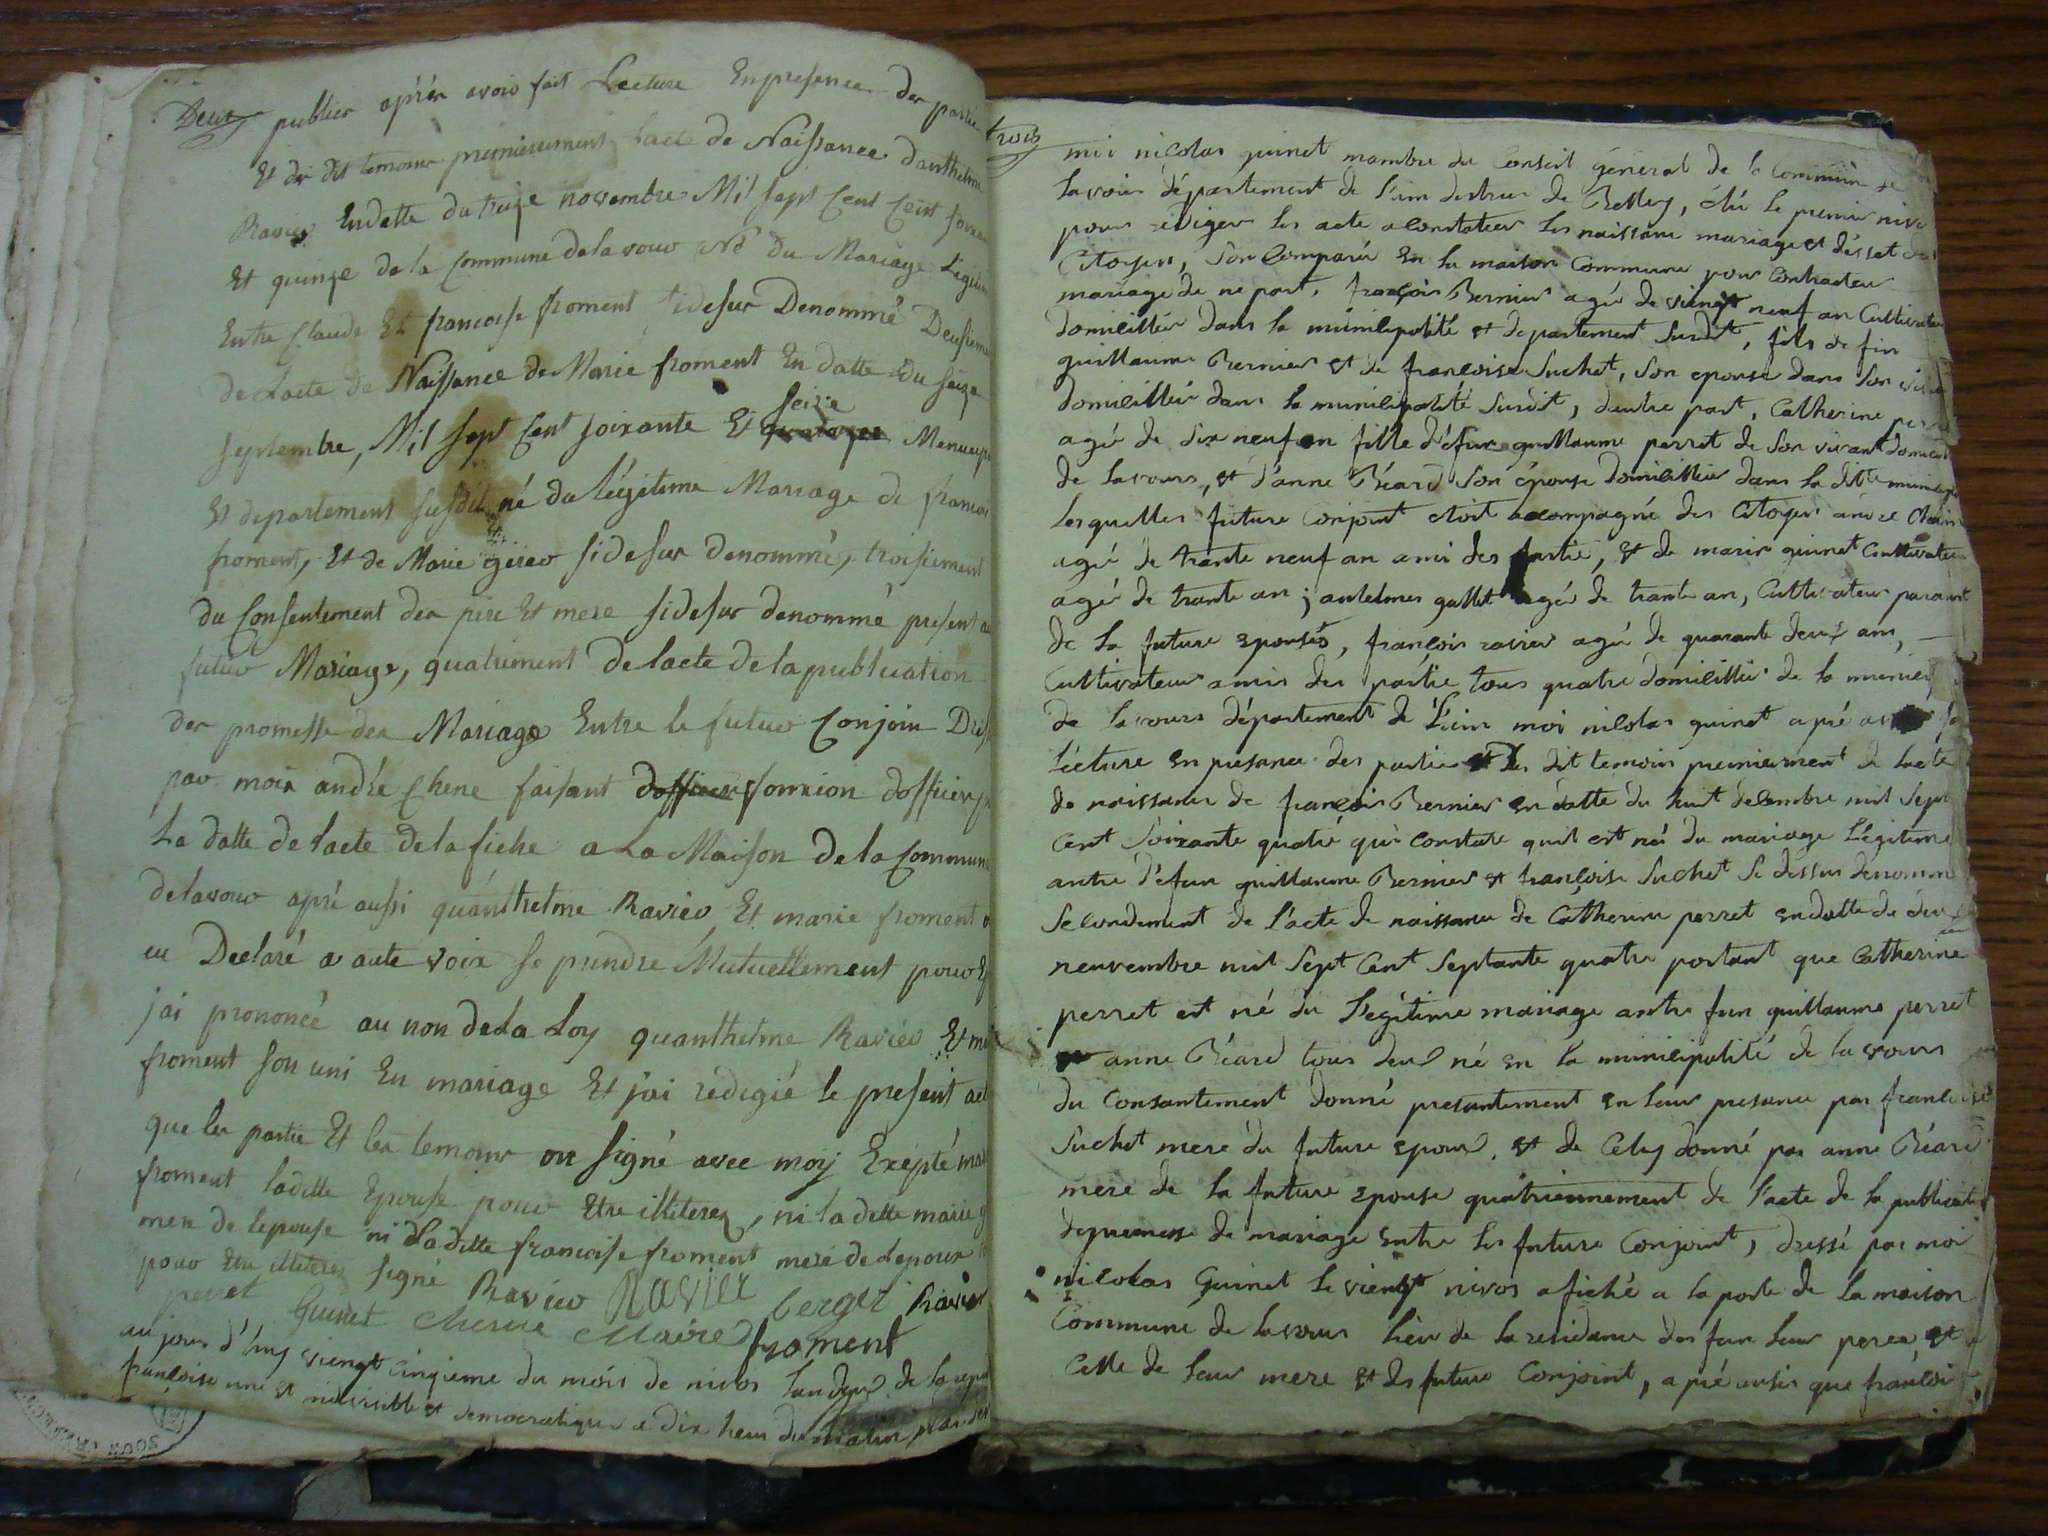 Deux
publier après avoir fait Lecture En presence der partie
Et der dit temoins premierement Lacte de Naissance danthelme
Ravier En datte du treize novembre Mil Sept Cent soixan
Et quinze de la Commune delavour Né du Mariage Legitim
Entre Claude Et francoise froment sidesur Denommé Deusieme
de Lacte de Naissance de Marie froment En datte du Seize
Septembre, Mil Sept Cent Soixante Et seize
Et departement susdit né du légitime Mariage de francois
froment, Et de Marie sidesur denommé, troisiement
du Consentement der pere Et mere sidesur denommé present au
futur Mariage, quatriement De lacte de la publication
der promesse der Mariage Entre le futur Conjoin Dressé
par moix andré Chene faisant fonxion dofficier
La datte de lacte de la fiche a La Maison de la Commune
delavour apré aussi quanthelme Ravier Et marie froment
eu Declaré a aute voix se prendre Mutuellement pour
jai prononcé au non de La Loy quanthelme Ravier Et ma
froment son uni En mariage Et j'ai redigié le present act
que ler partie Et ler temoins on signé avec moy Exepté mar
froment ladette Epouse pour Etre illiterez, ni la dette marie g
mere de lepouse ni La dette francoise froment mere de Lepoux
pour Etre illiterez signé Ravier Ravier berger Ravier
perret Guinet Chene Maire froment
aujour d'huy vienght cinqieme du mois de nivos l'an deux de la repub
francoise une et indivisible et democratique a dix heur du matin par de
trois
moi nicolas guinet mambre du Conseil général de la Commune de
lavour département de l'ain destrict de Belley, élu le premier nivo
pour rédiger les acte a constater les naissance mariage et desset des
Citoyen, son Comparu En la maison Commune pour Contracter
mariage de ne part, françois Bernier agé de vienght neuf an Cultivateur
domicillié dans la municipalité et departement Surdit, fils de fin
guillaume Bernier et de françoise Suchet, Son epouse dans Son
domicillié dans la municipalité Surdit, dautre part, Catherine perret
agé de dix neuf an fille d'éfun guillaume perret de Son vivant domicil
de lavours, et d'anne Béard Son épouse domicillié dans la ditte municip
lesquelles future Conjoint etoit acompagné des Citoyen andré Chain
agé de trante neuf an ami des partie, et de marin guinet Cultivateur
agé de trante an ; antelmes gallet agé de trante an, Cultivateur parant
de la future epousés, françois ravier agé de quarante deux an,
Cultivateur amis des partie tous quatre domicillié de la municip
de lavours département de l'ain moi nicolas guinet apré avoir fa
l'écture en presance des partie et des dit temoin premierment de lacte
de naissance de françois Bernier en datte du huit decembre mil Sept
Cent Soixante quatre qui constate quil est né du mariage l'égitime
antre d'éfun guillaume Bernier et françoise Suchet Si dessus denommé
Secondement de l'acte de naissance de Catherine perret en datte de deux
neuvembre mil Sept Cent Septante quatre portant que Catherine
perret est né du l'égitime mariage antre fun guillaume perret
et anne Béard tous deux né en la municipalité de lavours
du Consantement donné presantement en leur presance par francoise
Suchet mere du future epoux, et de Celuy donné par anne Béard
mere de la future epouse quatriennement de l'acte de la publicati
depromesse de mariage entre les future Conjoint, dressé par moi
nicolas Guinet le vienght nivos afiché a la porte de la maison
Commune de lavour lieu de la residance des fun leur peres, et
Celle de leur mere et des future Conjoint, apré aussis que françois